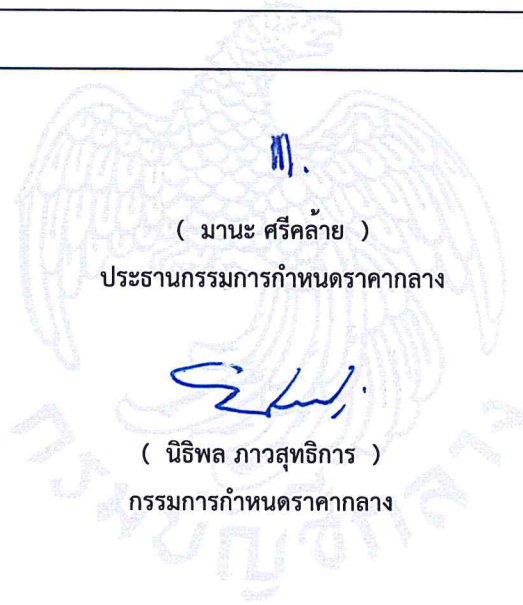 ( มานะ ศรีคล้าย )
ประธานกรรมการกำหนดราคากลาง
( นิธิพล ภาวสุทธิการ )
กรรมการกำหนดราคากลาง
กรมบัญชีกลาง